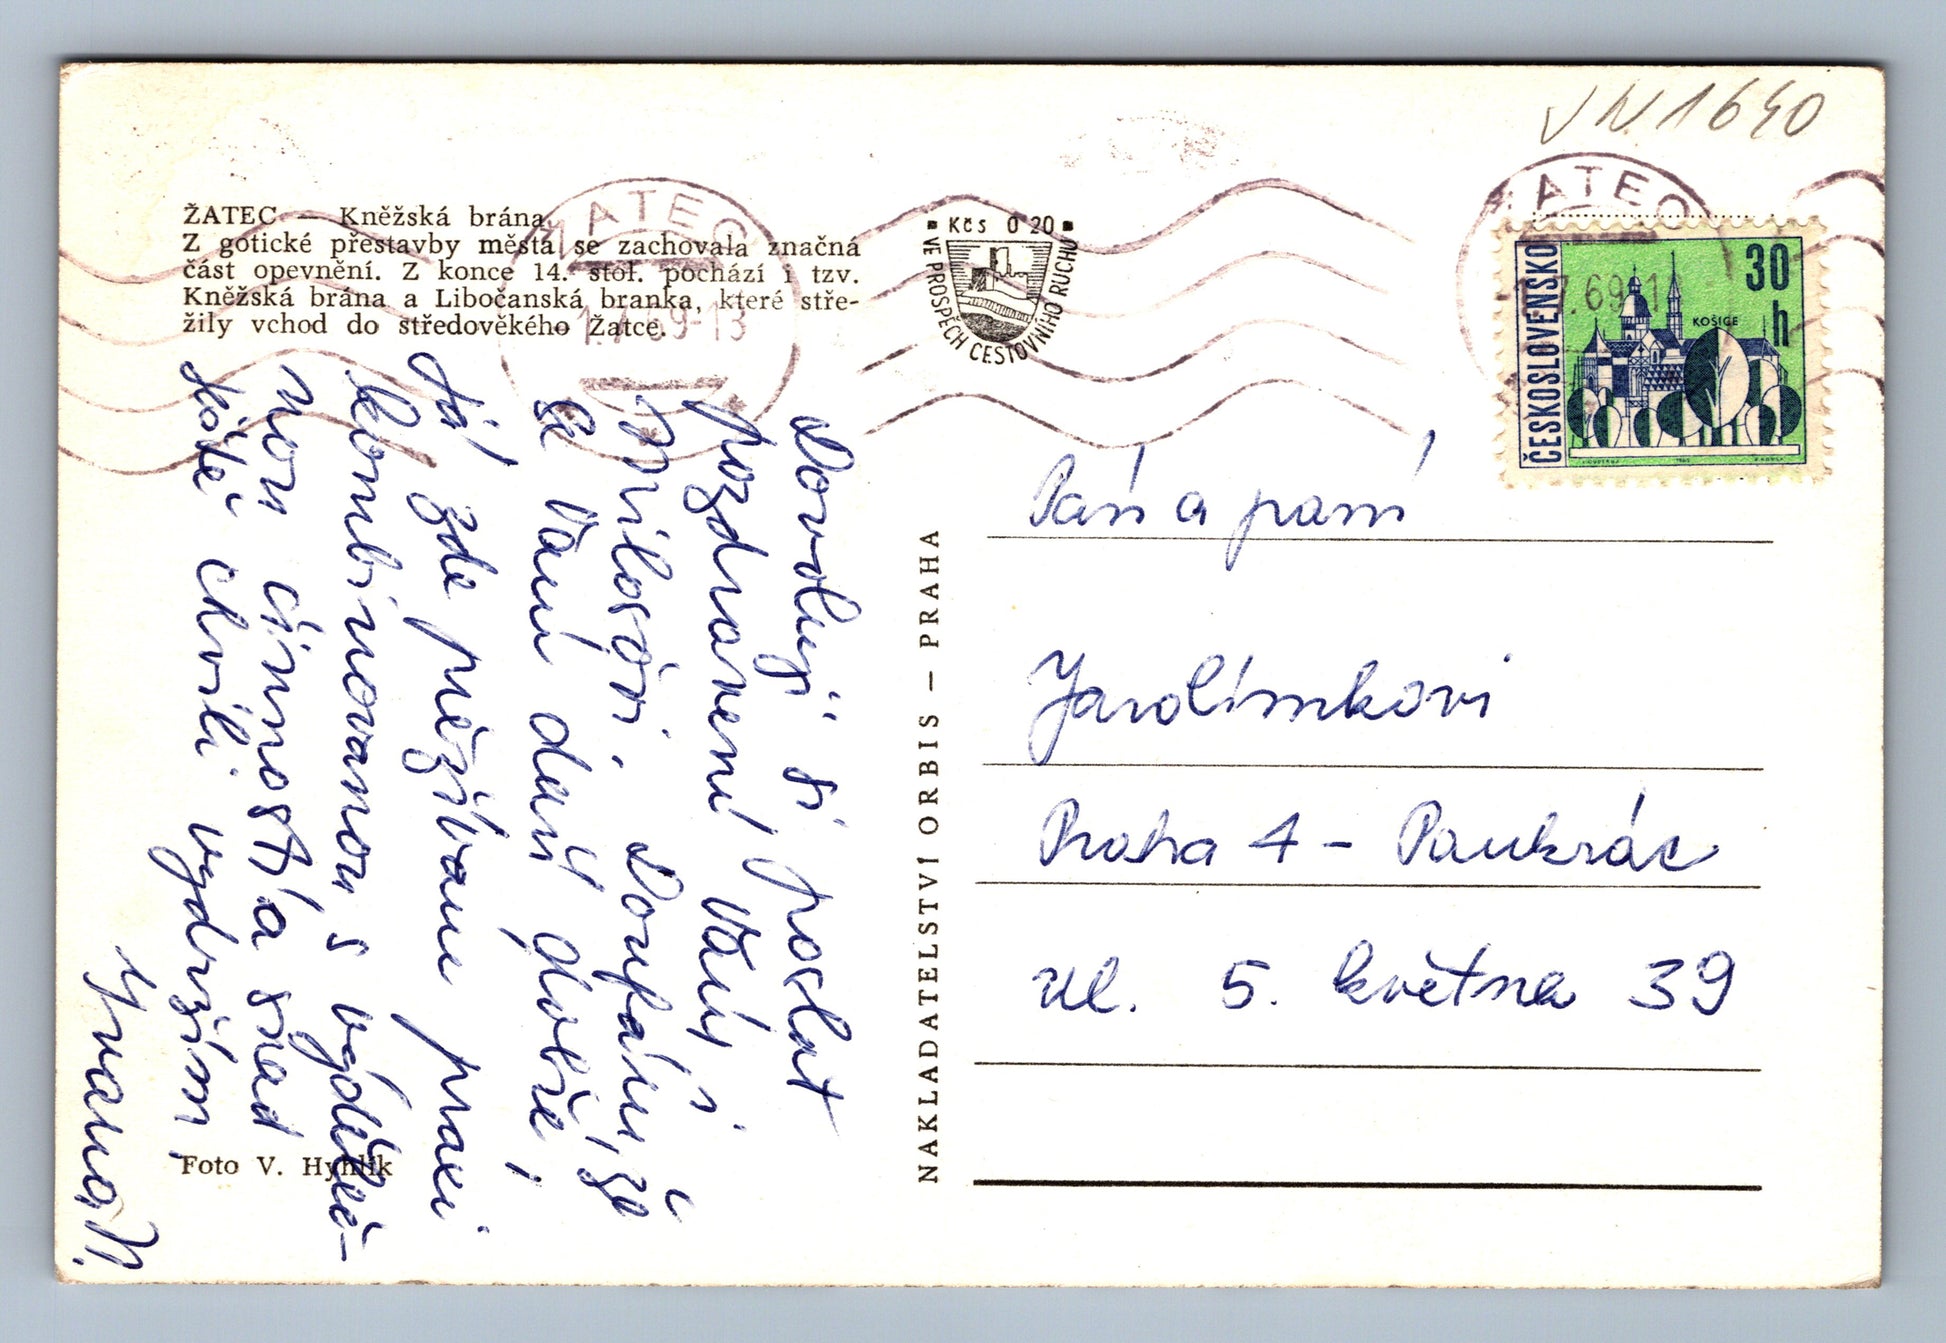 VN 1640
ŽATEC — Kněžská brána.
Z gotické přestavby města se zachovala značná
část opevnění. Z konce 14. stol. pochází i tzv.
Kněžská brána a Libočanská branka, které stře-
žily vchod do středověkého Žatce.
ŽATEC
1.7.69-13
Kčs 0 20
VE PROSPĚCH CESTOVNÍHO RUCHU
ŽATEC
7.69-1
ČESKOSLOVENSKO
30
h
KOŠICE
Dovoluji si poslat
pozdravení Vám i
Doufám, že
se Vám daří dobře,
Já zde prožívám praxi
kombinovanou s výděleč-
nou činností a snad
ještě chvíli vydržím,
Ivana H.
Foto V. Hyhlík
NAKLADATELSTVÍ ORBIS — PRAHA
Pán a paní
Jarolímkovi
Praha 4 - Pankrác
ul. 5. května 39